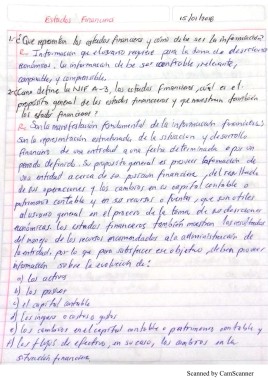 Estados Financieros 15/01/2018
1.- ¿Que representan los estados financieros y cómo debe ser la información?
R= Información que el usuario requiere para la toma de decisiones
económicas. La información debe ser confiable, relevante,
comprensible y comparable.
2-¿Como define la NIF A-3, los estados financieros, cuál es el
propósito general de los estados financieros y que muestran también
los estados financieros?
R= Son la manifestación fundamental de la información financiera,
son la representación estructurada de la situación y desarrollo
financiero de una entidad a una fecha determinada o por un
periodo definido. Su propósito general es proveer información de
una entidad acerca de su posición financiera, del resultado
de sus operaciones y los cambios en su capital contable o
patrimonio contable y en sus recursos o fuentes, que son útiles
al usuario general en el proceso de la toma de sus decisiones
económicas. Los estados financieros también muestran los resultados
del manejo de los recursos encomendados a la administración de
la entidad, por lo que para satisfacer ese objetivo, deben proveer
información sobre la evolución de:
a) los activos
b) los pasivos
c) el capital contable
d) los ingresos o costos y gastos
e) los cambios en el capital contable o patrimonio contable y
f) los flujos de efectivo, en su caso, los cambios en la
situación financiera
Scanned by CamScanner